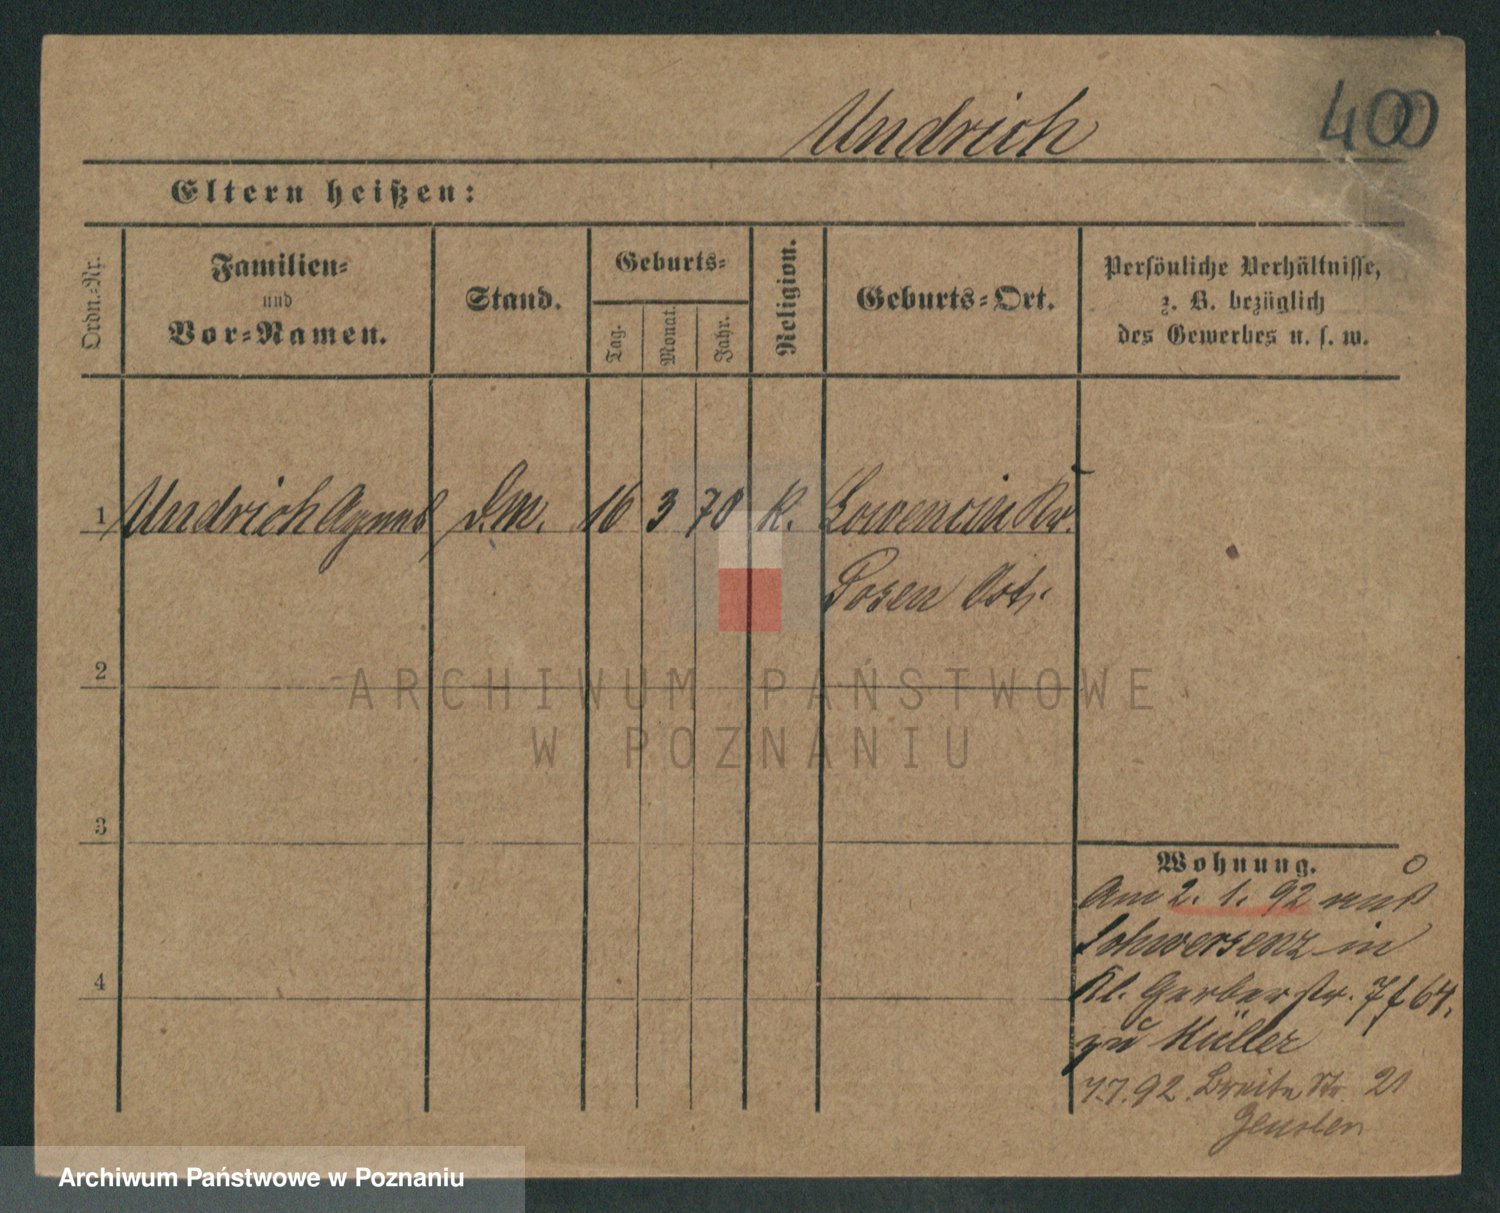 Undrich
400
Eltern heißen:
Ordn.-Nr.
Familien-
und
Vor-Namen.
Stand.
Geburts-
Tag.
Monat.
Jahr.
Religion.
Geburts-Ort.
Persönliche Verhältnisse,
z. B. bezüglich
des Gewerbes u. s. w.
1 Undrich Agnes D.M. 16 3 70 K. Lowencin Kr.
Posen Ost.
2
ARCHIWUM PAŃSTWOWE
W POZNANIU
3
4
Wohnung.
Am 2. 1. 92 aus
Schwersenz in
Kl. Gerberstr. 7 f 64.
zu Müller
7.7.92. Breite Str. 21
Archiwum Państwowe w Poznaniu